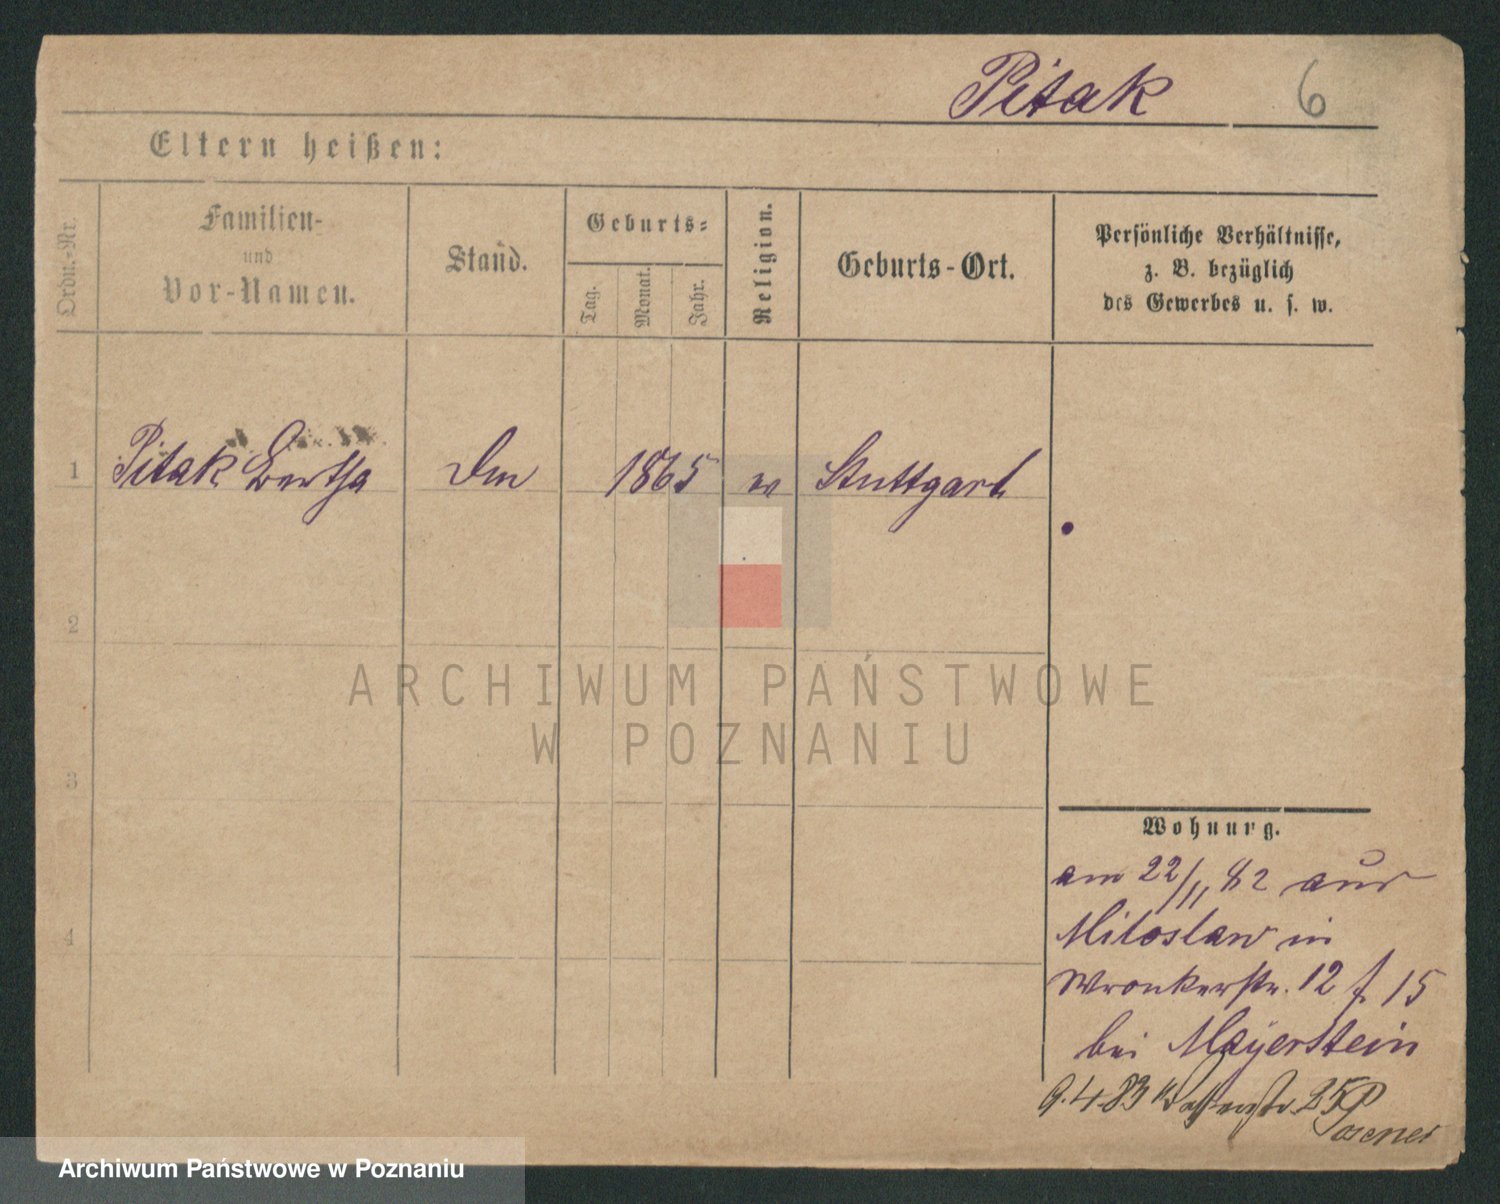 Pitak 6
Eltern heißen:
Ordn.-Nr.
Familien-
und
Vor-Namen.
Stand.
Geburts-
Tag.
Monat.
Jahr.
Religion.
Geburts-Ort.
Persönliche Verhältnisse,
z. B. bezüglich
des Gewerbes u. s. w.
1 Pitak Bertha 1865 Stuttgart
2
3
4
ARCHIWUM PAŃSTWOWE
W POZNANIU
Wohnung.
am 22/11 82 aus
Miloslaw in
Wronkerstr. 12 f. 15
bei Mayerstein
9.4.83 25 Posener
Archiwum Państwowe w Poznaniu